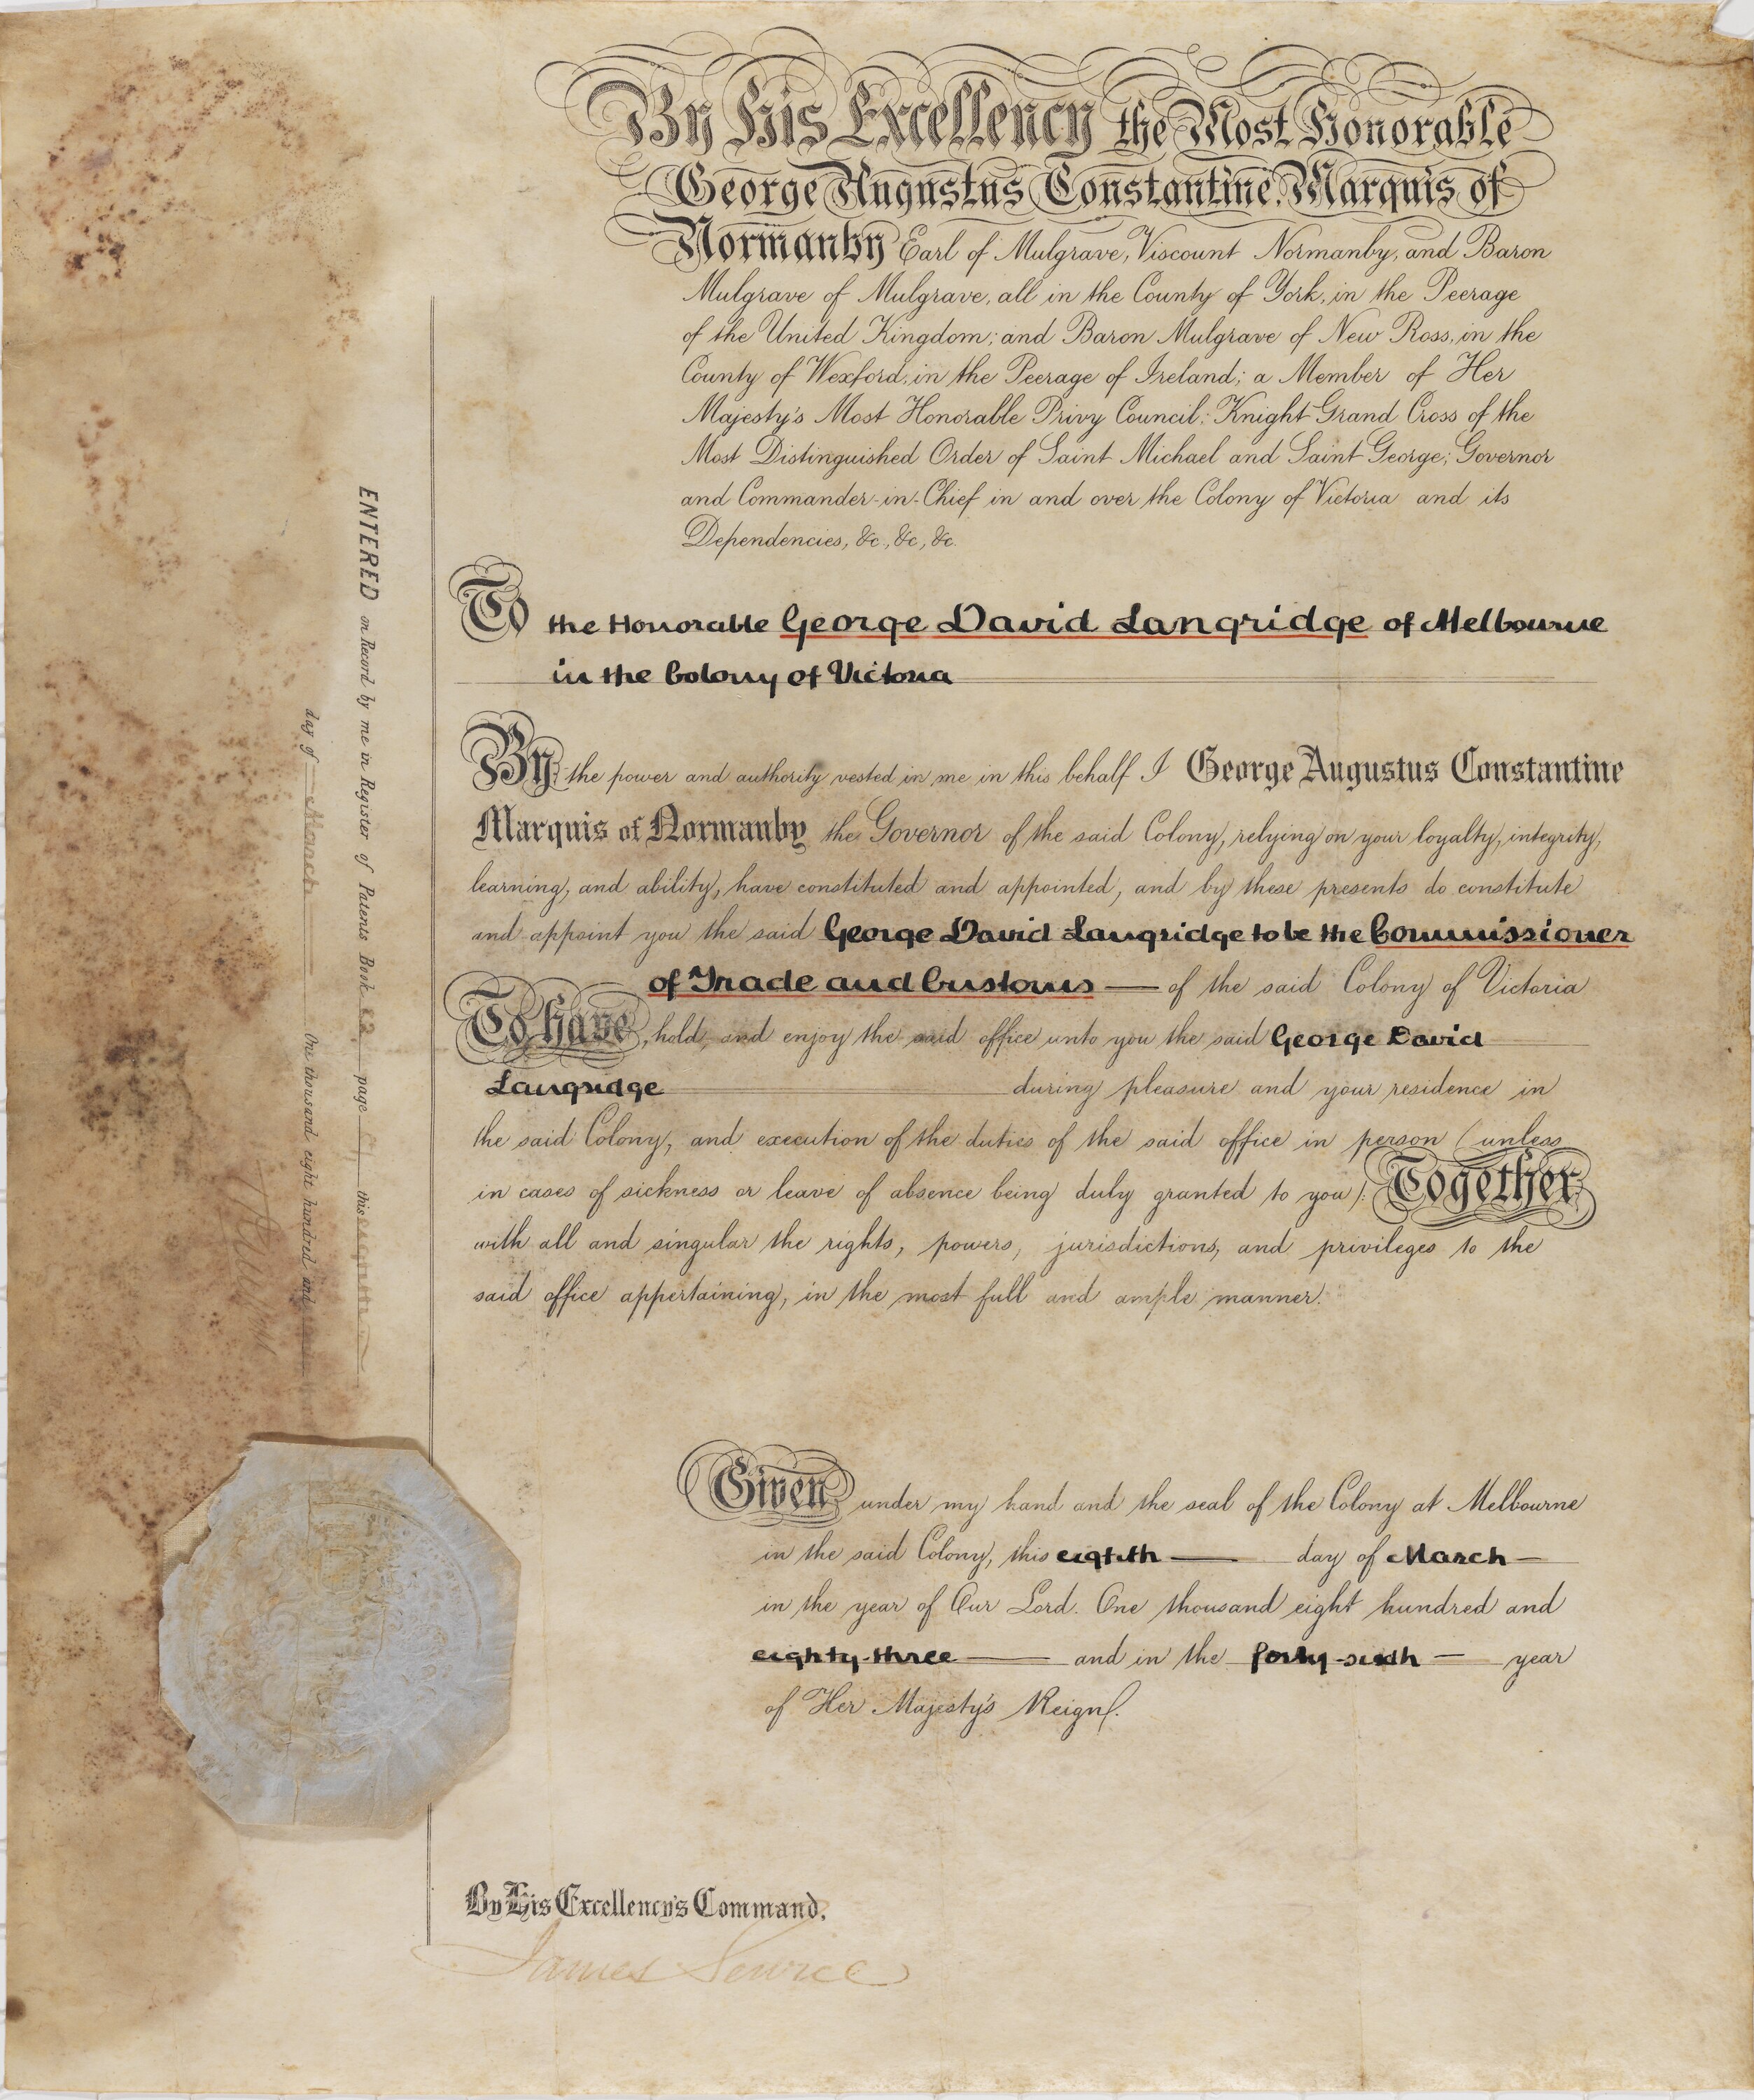 By His Excellency the Most Honorable
George Augustus Constantine, Marquis of
Normanby Earl of Mulgrave, Viscount Normanby, and Baron
Mulgrave of Mulgrave, all in the County of York, in the Peerage
of the United Kingdom; and Baron Mulgrave of New Ross, in the
County of Wexford, in the Peerage of Ireland; a Member of Her
Majesty's Most Honorable Privy Council; Knight Grand Cross of the
Most Distinguished Order of Saint Michael and Saint George; Governor
and Commander-in-Chief in and over the Colony of Victoria and its
Dependencies, &c., &c., &c.
To the Honorable George David Langridge of Melbourne
in the Colony of Victoria
By the power and authority vested in me in this behalf I George Augustus Constantine
Marquis of Normanby the Governor of the said Colony, relying on your loyalty, integrity,
learning, and ability, have constituted and appointed, and by these presents do constitute
and appoint you the said George David Langridge to be the Commissioner
of Trade and Customs — of the said Colony of Victoria
To have, hold, and enjoy the said office unto you the said George David
Langridge during pleasure and your residence in
the said Colony, and execution of the duties of the said office in person (unless
in cases of sickness or leave of absence being duly granted to you): Together
with all and singular the rights, powers, jurisdictions, and privileges to the
said office appertaining, in the most full and ample manner.
Given under my hand and the seal of the Colony at Melbourne
in the said Colony, this eighth — day of March —
in the year of Our Lord. One thousand eight hundred and
eighty-three — and in the forty-sixth — year
of Her Majesty's Reign.
By His Excellency's Command,
James Service
ENTERED on Record by me in Register of Patents Book page this
day of March One thousand eight hundred and